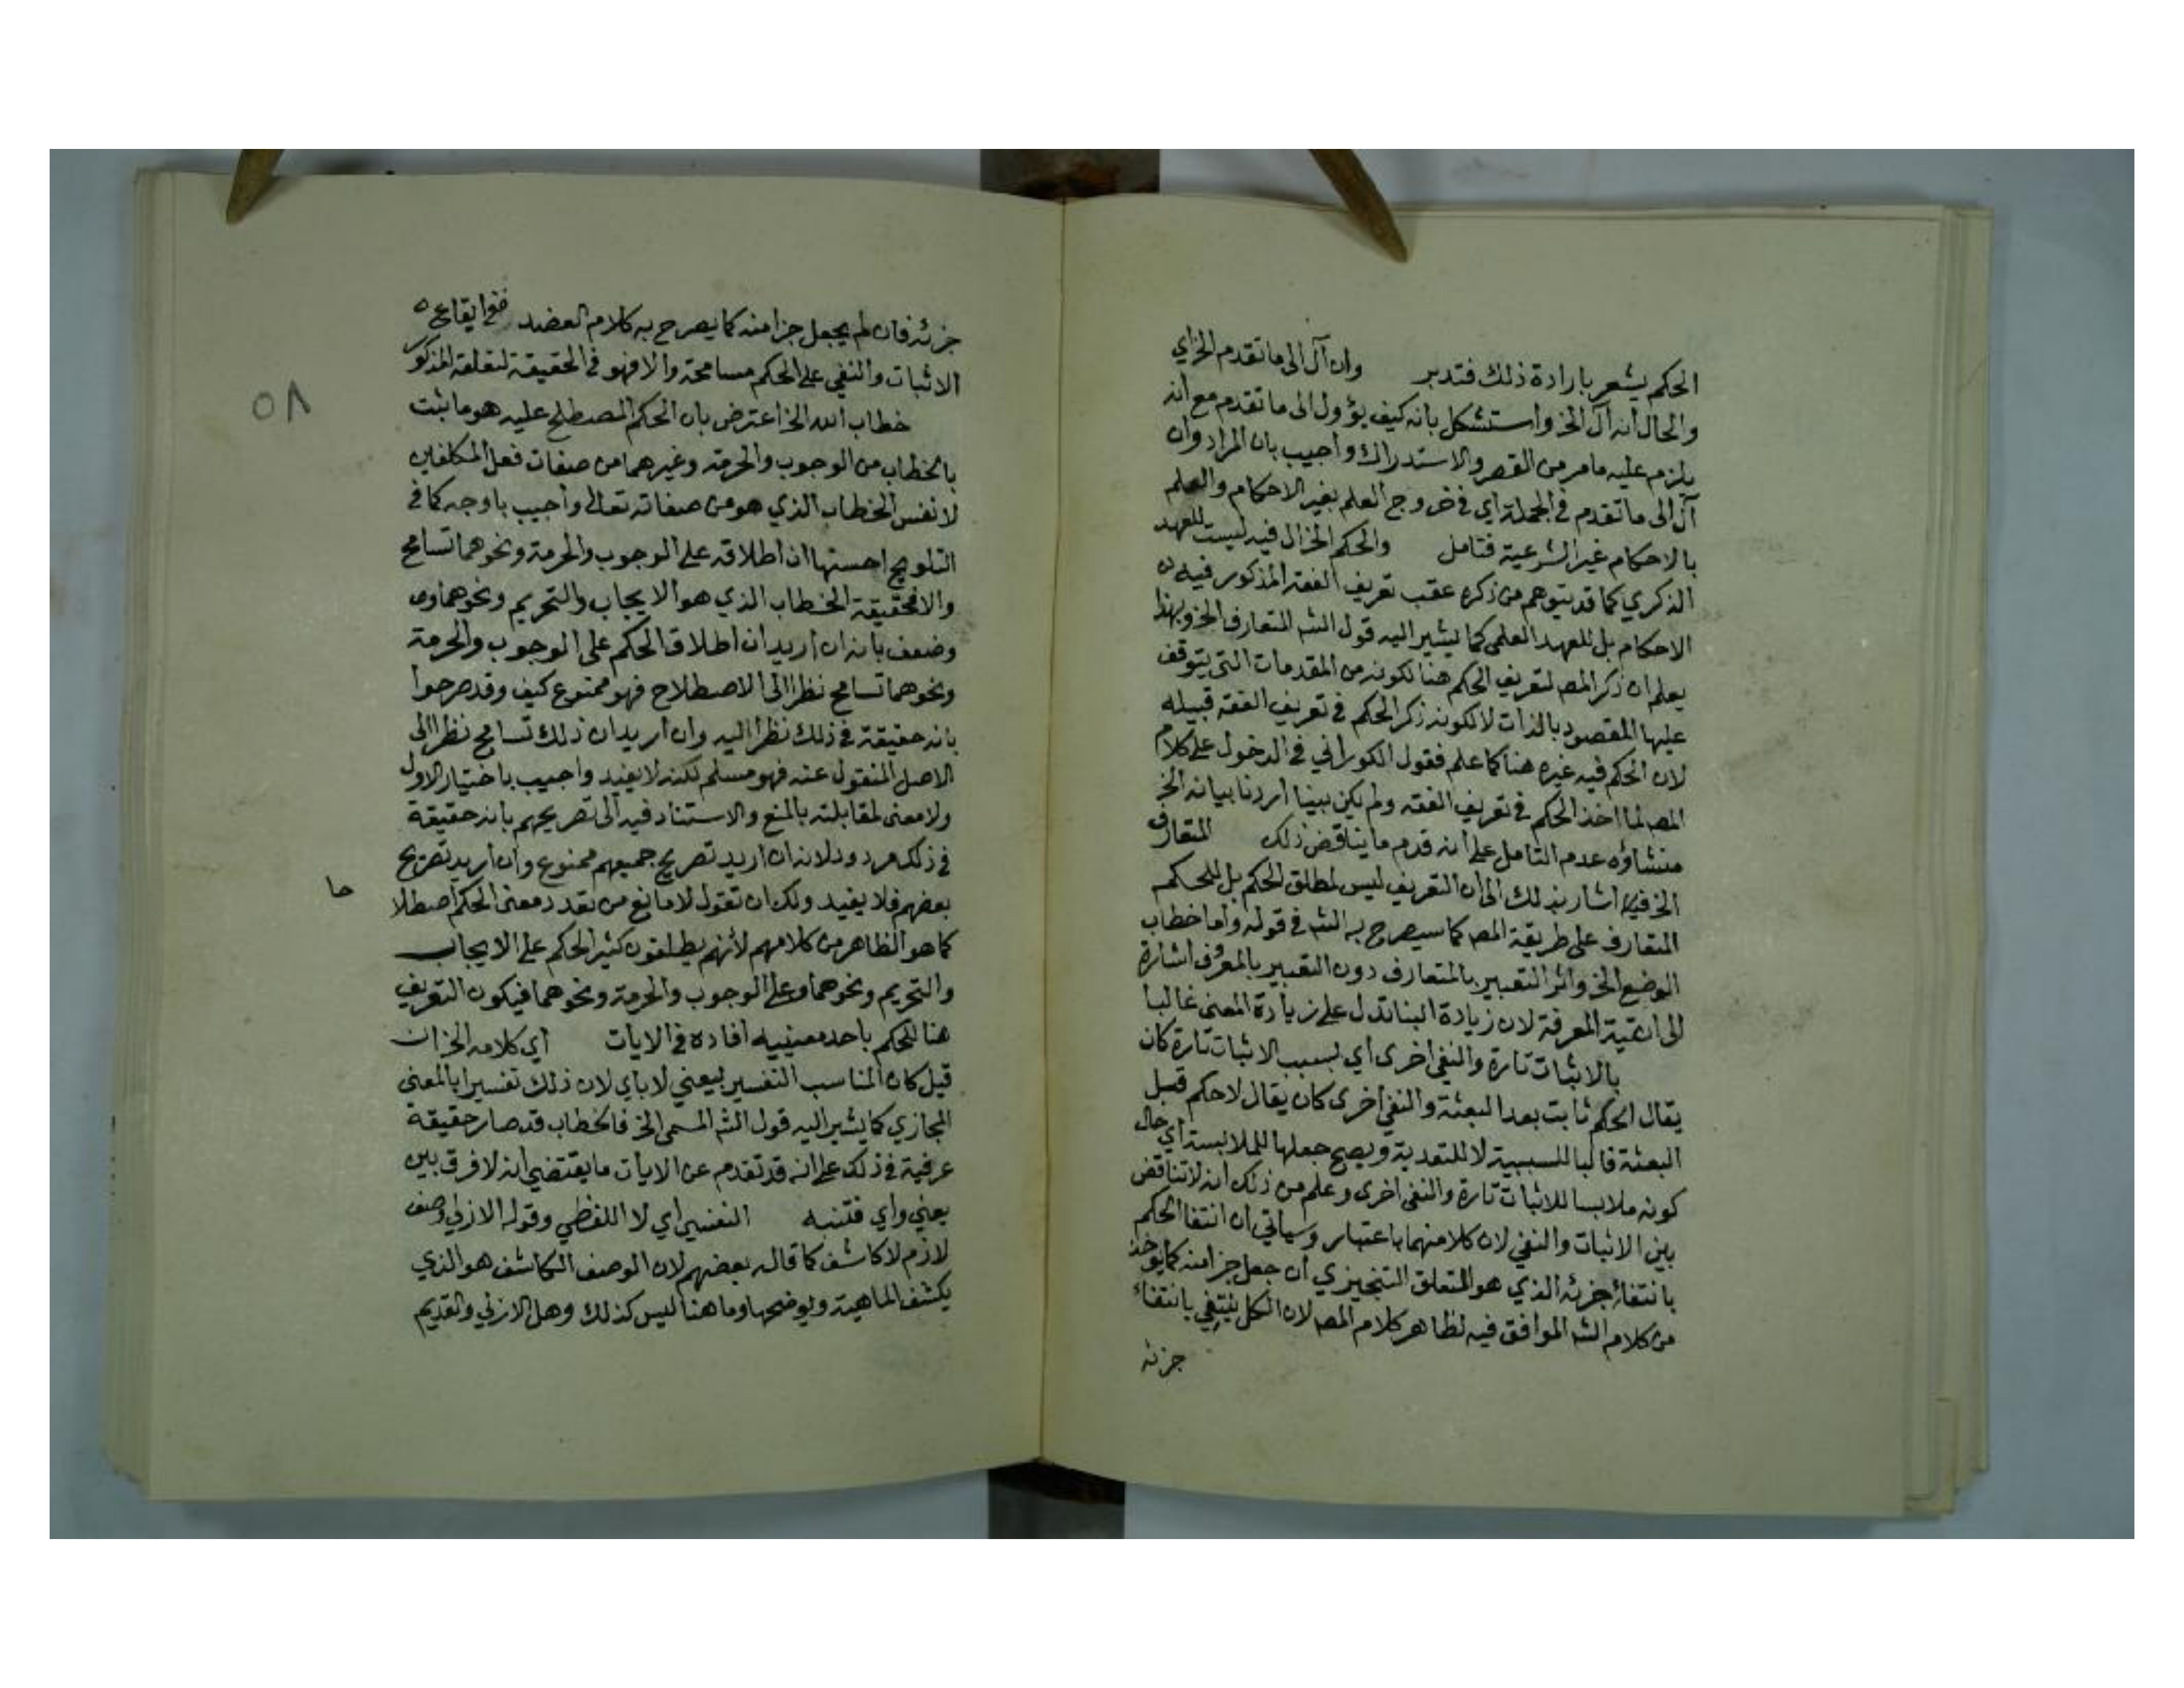 الحكم يشعر بارادة ذلك فتدبر وان آل الى ما تقدم الخ اي
والحال انه آل الخ واستشكل بانه كيف يؤول الى ما تقدم مع انه
يلزم عليه ما مر من القصر والاستدراك واجيب بان المراد وان
آل الى ما تقدم في الجملة اي في خروج العلم بغير الاحكام والعلم
بالاحكام غير الشرعية فتامل والحكم الخ ال فيه ليست للعهد
الذكري كما قد يتوهم من ذكره عقب تعريف الفقه المذكور فيه
الاحكام بل للعهد العلمي كما يشير اليه قول الشه المتعارف الخ وبهذا
يعلم ان ذكر المصـ لتعريف الحكم هنا لكونه من المقدمات التي يتوقف
عليها المقصود بالذات لا لكونه ذكر الحكم في تعريف الفقه قبيله
لان الحكم فيه غيره هنا كما علم فقول الكوراني في الدخول على كلام
المصـ لما اخذ الحكم في تعريف الفقه ولم يكن بينا اردنا بيانه الخ
منشاؤه عدم التامل على انه قدم ما يناقض ذلك المتعارف
الخ فيه اشار بذلك الى ان التعريف ليس لمطلق الحكم بل للحكم
المتعارف على طريقة المصـ كما سيصرح به الشه في قوله واما خطاب
الوضع الخ واثر التعبير بالمتعارف دون التعبير بالمعروف اشارة
الى المعرفة لان زيادة البنا تدل على زيادة المعنى غالبا
بالاثبات تارة والنفي اخرى اي بسبب الاثبات تارة كان
يقال الحكم ثابت بعد البعثة والنفي اخرى كان يقال لا حكم قبل
البعثة فالبا للسببية لا للتعدية ويصح جعلها للملابسة اي حال
كونه ملابسا للاثبات تارة والنفي اخرى وعلم من ذلك انه لا تناقض
بين الاثبات والنفي لان كلا منهما باعتبار وسياتي ان انتفا الحكم
بانتفاء جزئه الذي هو المتعلق التنجيزي ان جعل جزا منه كما يوخذ
من كلام الشه الموافق فيه لظاهر كلام المصـ لان الكل ينتفي بانتفاء
جزئه
جزئه فان لم يجعل جزا منه كما يصرح به كلام العضد ففي ايقاع
الاثبات والنفي على الحكم مسامحة والا فهو في الحقيقة لتعلقه المذكور
خطاب الله الخ اعترض بان الحكم المصطلح عليه هو ما ثبت
بالخطاب من الوجوب والحرمة وغيرهما من صفات فعل المكلفين
لا نفس الخطاب الذي هو من صفاته تعالى واجيب باوجه كما في
التلويح احسنها ان اطلاقه على الوجوب والحرمة ونحوهما تسامح
والا فحقيقة الخطاب الذي هو الايجاب والتحريم ونحوهما
وضعف بانه ان اريد ان اطلاق الحكم على الوجوب والحرمة
ونحوهما تسامح نظرا الى الاصطلاح فهو ممنوع كيف وقد صرحوا
بانه حقيقة في ذلك نظرا اليه وان اريد ان ذلك تسامح نظرا الى
الاصل المنقول عنه فهو مسلم لكنه لا يفيد واجيب باختيار الاول
ولا معنى لمقابلته بالمنع والاستناد فيه الى تصريحهم بانه حقيقة
في ذلك مردود لانه ان اريد تصريح جميعهم ممنوع وان اريد تصريح
بعضهم فلا يفيد ولك ان تقول لا مانع من تعدد معنى الحكم اصطلا
حا
كما هو الظاهر من كلامهم لانهم يطلقون كثيرا الحكم على الايجاب
والتحريم ونحوهما وعلى الوجوب والحرمة ونحوهما فيكون التعريف
هنا للحكم باحد معنييه افاده في الايات اي كلامه الخ ان
قيل كان المناسب التفسير بيعني لا باي لان ذلك تفسير بالمعنى
المجازي كما يشير اليه قول الشه المسمى الخ فالخطاب قد صار حقيقة
عرفية في ذلك على انه قد تقدم عن الايات ما يقتضي انه لا فرق بين
يعني واي فتنبه النفسي اي لا اللفظي وقوله الازلي وصف
لازم لا كاشف كما قاله بعضهم لان الوصف الكاشف هو الذي
يكشف الماهية ويوضحها وما هنا ليس كذلك وهل الازلي والقديم
٥٨